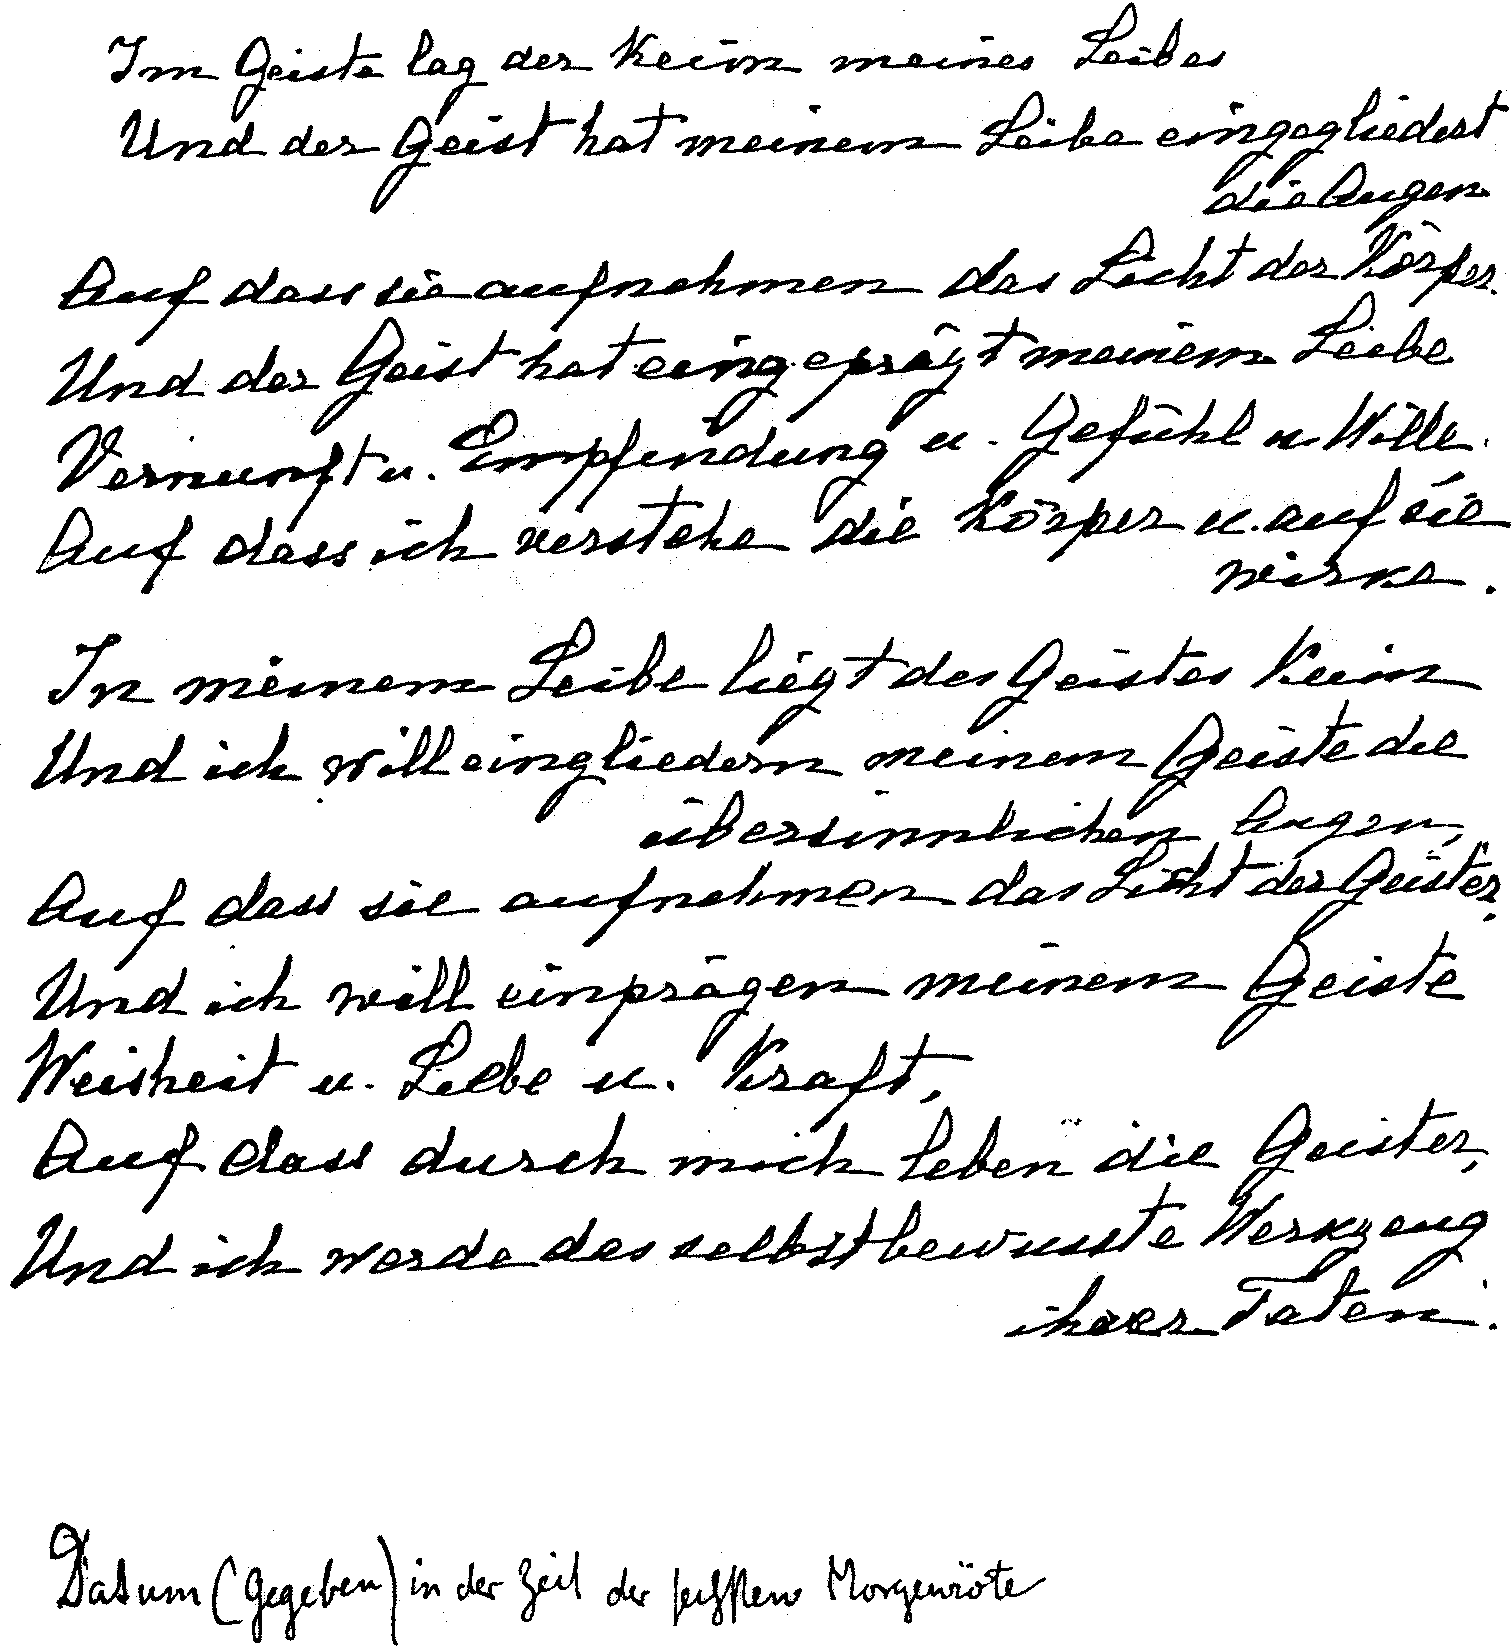 Im Geiste lag der Keim meines Leibes
Und der Geist hat meinem Leibe eingegliedert
die Augen
Auf dass sie aufnehmen das Licht der Körper.
Und der Geist hat eingeprägt meinem Leibe
Vernunft u. Empfindung u. Gefühl u. Wille.
Auf dass ich verstehe die Körper u. auf sie
wirke.
In meinem Leibe liegt des Geistes Keim
Und ich will eingliedern meinem Geiste die
übersinnlichen Augen,
Auf dass sie aufnehmen das Licht der Geister.
Und ich will einprägen meinem Geiste
Weisheit u. Liebe u. Kraft,
Auf dass durch mich leben die Geister,
Und ich werde das selbstbewusste Werkzeug
ihrer Taten.
Datum (Gegeben) in der Zeit der sechsten Morgenröte